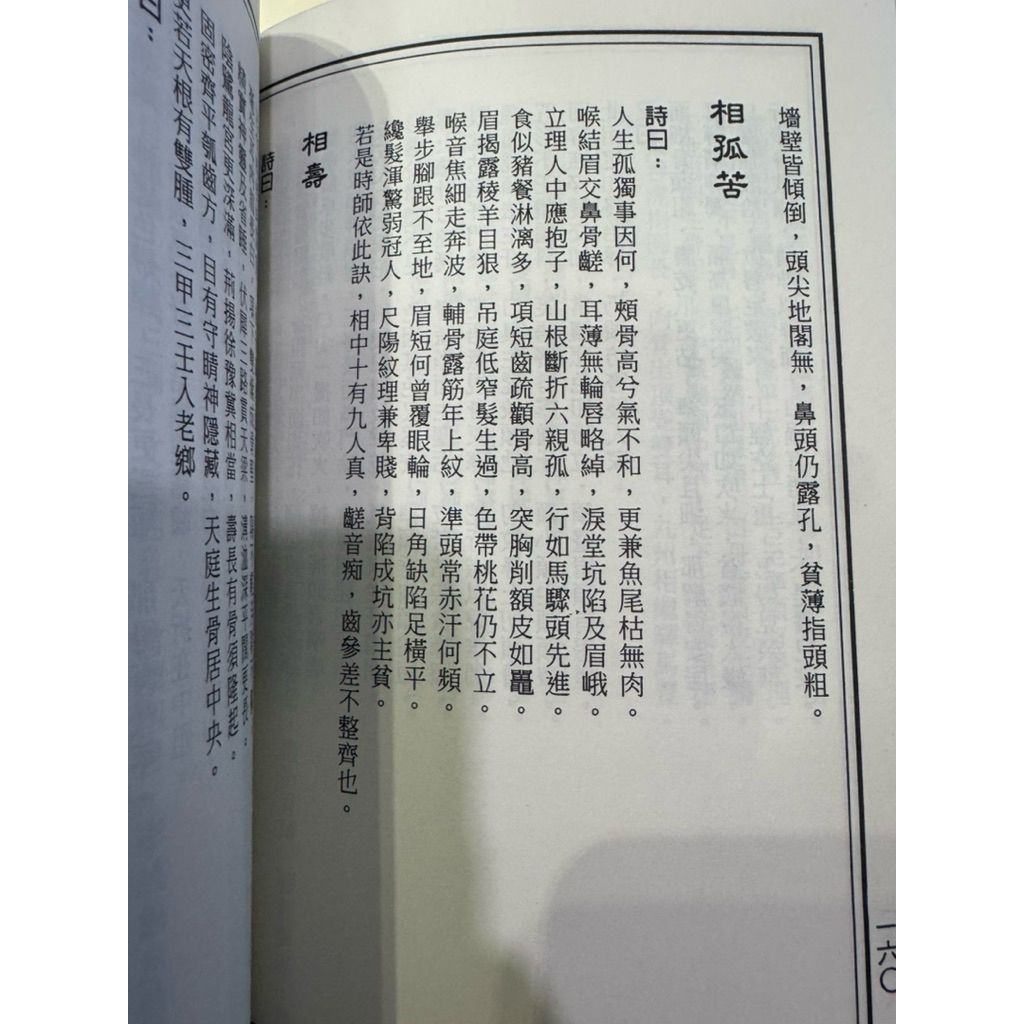 墻壁皆傾倒，頭尖地閣無，鼻頭仍露孔，貧薄指頭粗。
相孤苦
詩曰：
人生孤獨事因何，頰骨高兮氣不和，更兼魚尾枯無肉。
喉結眉交鼻骨齹，耳薄無輪唇略綽，淚堂坑陷及眉峨。
立理人中應抱子，山根斷折六親孤，行如馬驟頭先進。
食似豬餐淋漓多，項短齒疏顴骨高，突胸削額皮如鼉。
眉揭露稜羊目狠，吊庭低窄髮生過，色帶桃花仍不立。
喉音焦細走奔波，輔骨露筋年上紋，準頭常赤汗何頻。
舉步腳跟不至地，眉短何曾覆眼輪，日角缺陷足橫平。
纔髮渾驚弱冠人，尺陽紋理兼卑賤，背陷成坑亦主貧。
若是時師依此訣，相中十有九人真，齹音痴，齒參差不整齊也。
相壽
詩曰：
一六〇
陰騭龍宮更深滿，荊揚徐豫冀相當，壽長有骨須隆起。
固密齊平瓠齒方，目有守睛神隱藏，天庭生骨居中央。
更若天根有雙腫，三甲三王入老鄉。
曰：